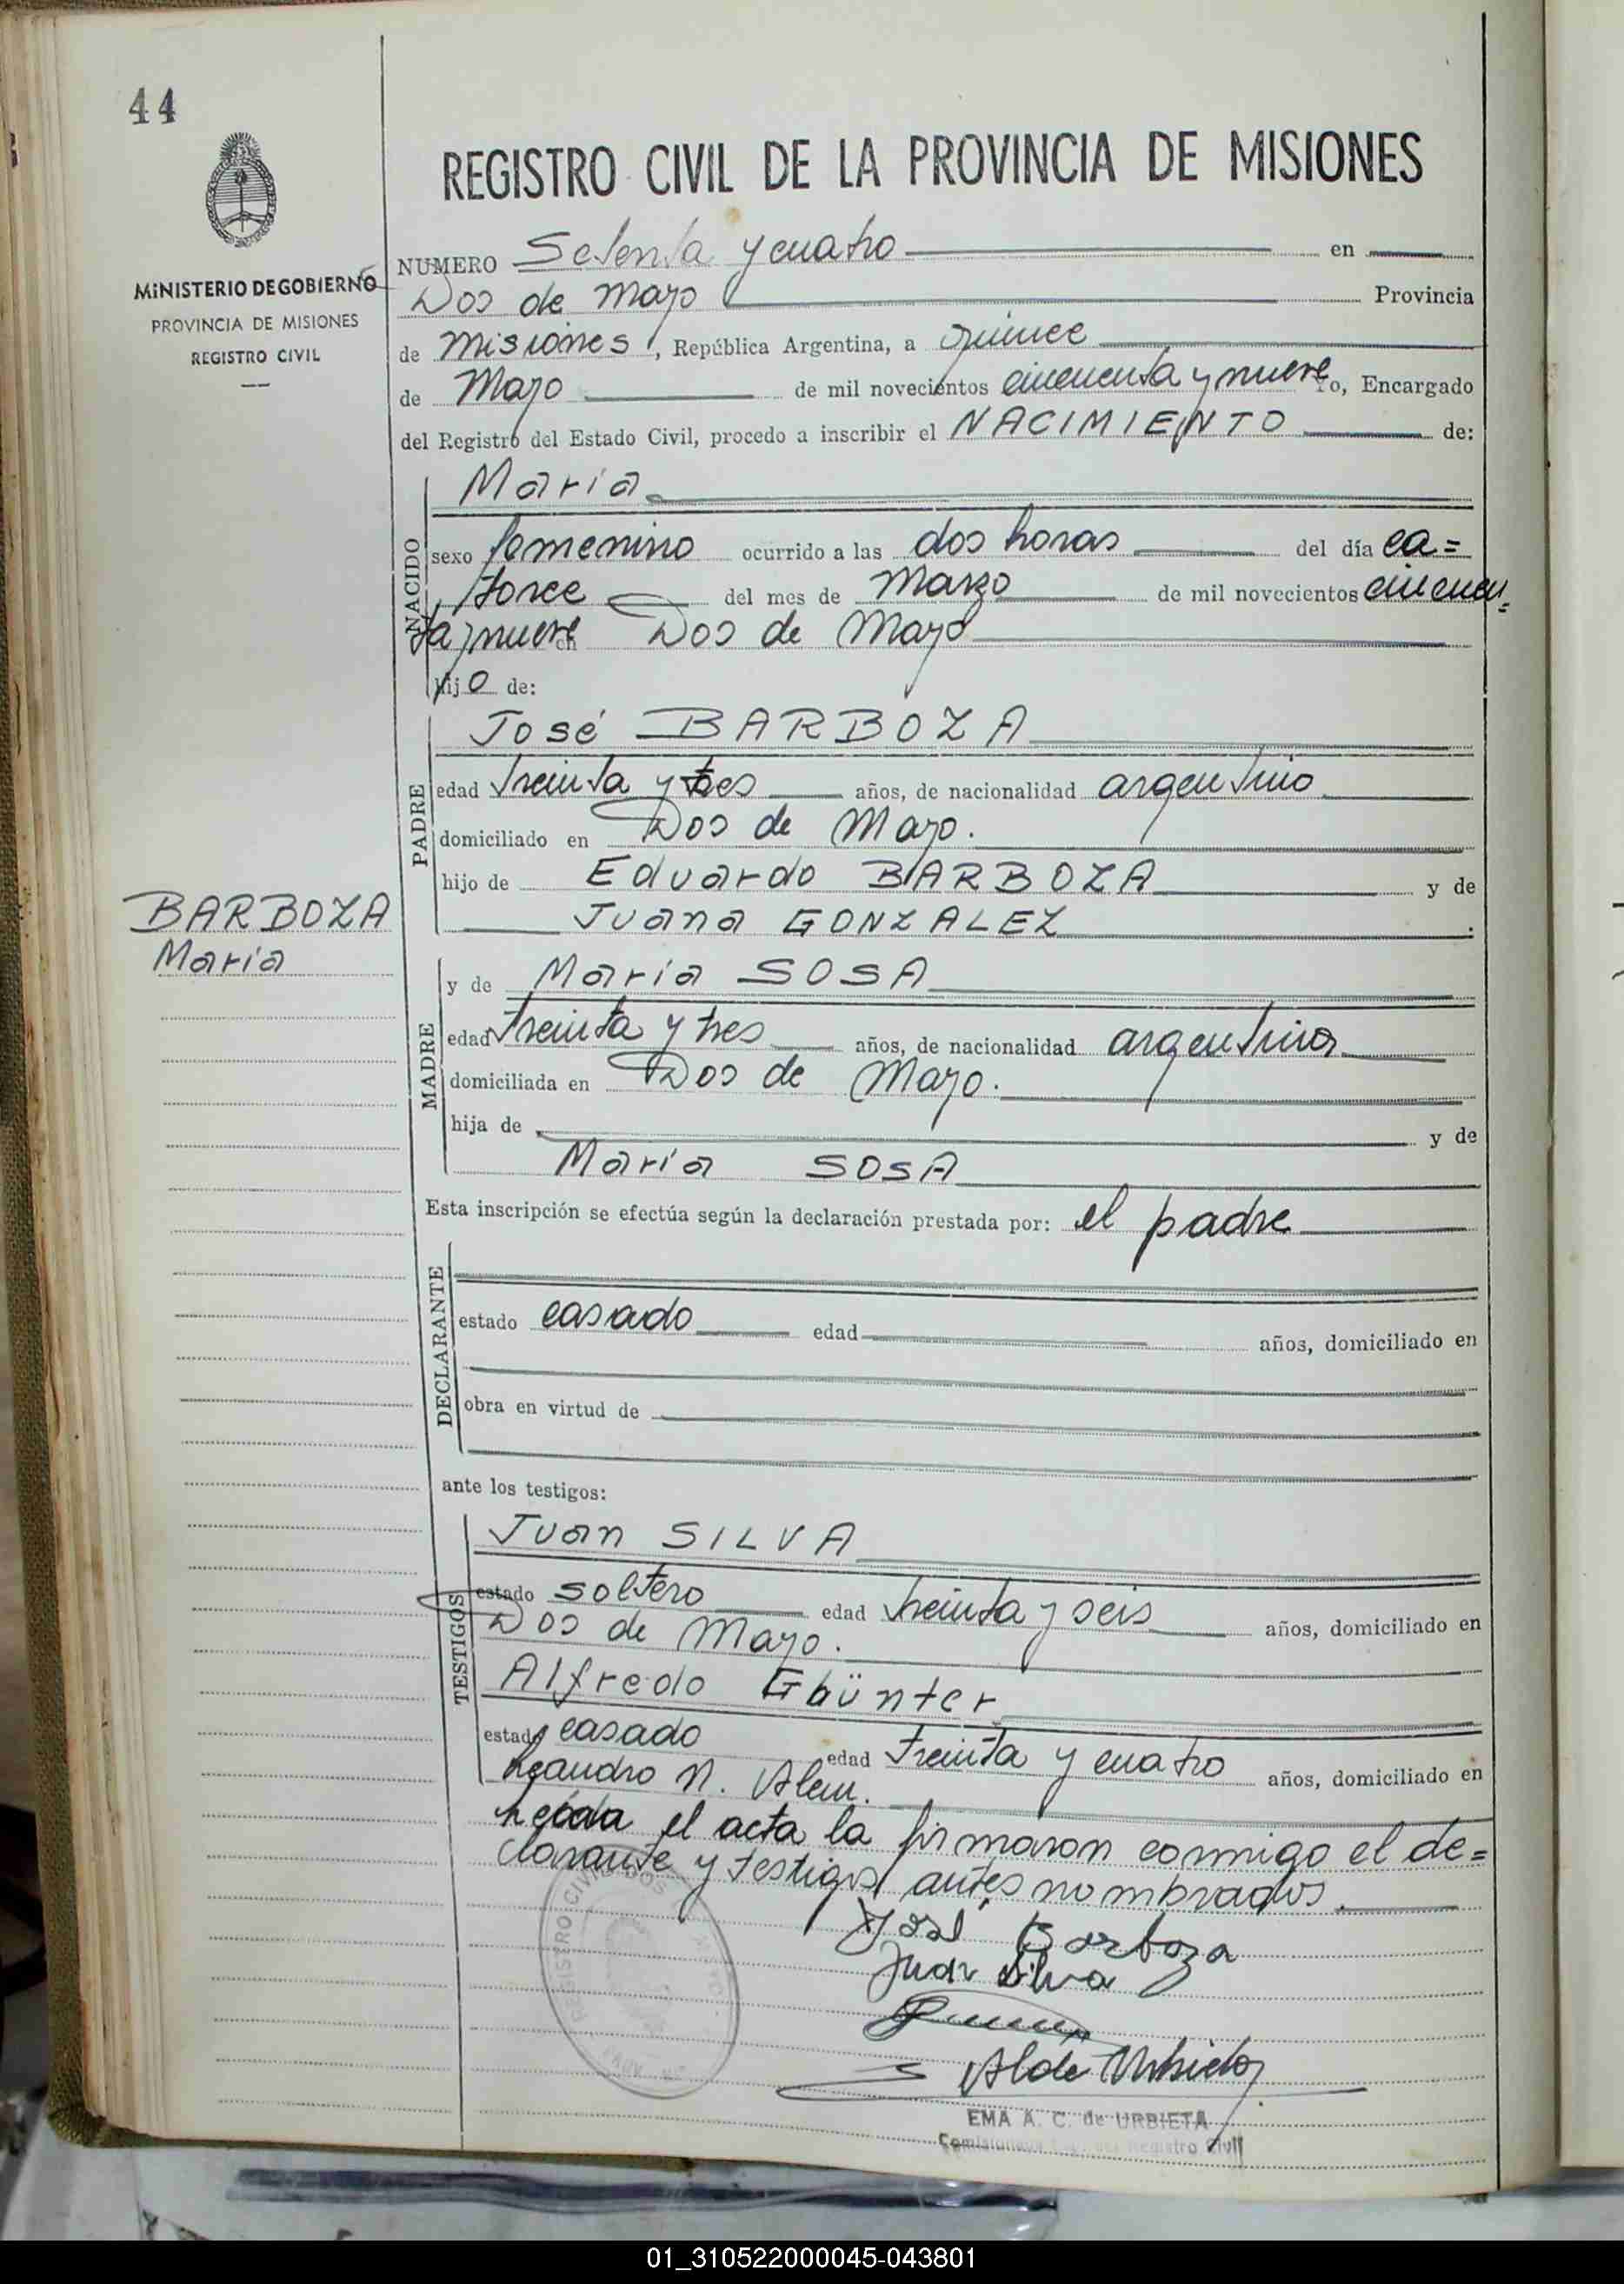 44
REGISTRO CIVIL DE LA PROVINCIA DE MISIONES
MINISTERIO DE GOBIERNO
PROVINCIA DE MISIONES
REGISTRO CIVIL
NUMERO Setenta y cuatro en
Dos de Mayo Provincia
de Misiones, República Argentina, a quince
de Mayo de mil novecientos cincuenta y nueve Yo, Encargado
del Registro del Estado Civil, procedo a inscribir el NACIMIENTO de:
NACIDO
Maria
sexo femenino ocurrido a las dos horas del día ca=
torce del mes de Marzo de mil novecientos cincuen=
ta y nueve en Dos de Mayo
hijo de:
PADRE
José BARBOZA
edad treinta y tres años, de nacionalidad argentino
domiciliado en Dos de Mayo.
hijo de Eduardo BARBOZA y de
Juana GONZALEZ.
BARBOZA
Maria
MADRE
y de Maria SOSA
edad treinta y tres años, de nacionalidad argentina
domiciliada en Dos de Mayo.
hija de y de
Maria SOSA
Esta inscripción se efectúa según la declaración prestada por: el padre
DECLARANTE
estado casado edad años, domiciliado en
obra en virtud de
ante los testigos:
TESTIGOS
Juan SILVA
estado soltero edad treinta y seis años, domiciliado en
Dos de Mayo.
Alfredo Gbünter
estado casado edad treinta y cuatro años, domiciliado en
Leandro N. Alem.
Leída el acta la firmaron conmigo el de=
clarante y testigos antes nombrados.
José Barboza
Juan Silva
REGISTRO CIVIL DOS
EMA A. C. de URBIETA
Registro Civil
01_310522000045-043801